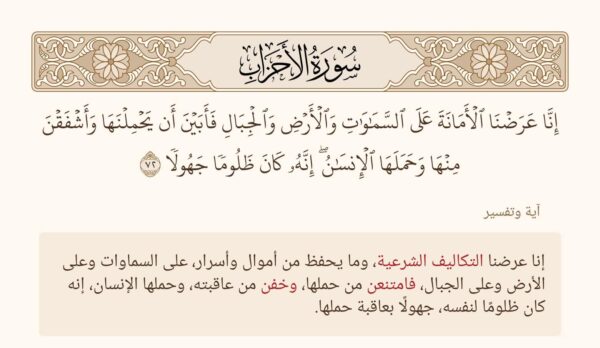 سُورَةُ الأَحْزَابِ
إِنَّا عَرَضْنَا ٱلْأَمَانَةَ عَلَى ٱلسَّمَٰوَٰتِ وَٱلْأَرْضِ وَٱلْجِبَالِ فَأَبَيْنَ أَن يَحْمِلْنَهَا وَأَشْفَقْنَ
مِنْهَا وَحَمَلَهَا ٱلْإِنسَٰنُۖ إِنَّهُۥ كَانَ ظَلُومًا جَهُولًا ٧٢
آية وتفسير
إنا عرضنا التكاليف الشرعية، وما يحفظ من أموال وأسرار، على السماوات وعلى
الأرض وعلى الجبال، فامتنعن من حملها، وخفن من عاقبته، وحملها الإنسان، إنه
كان ظلومًا لنفسه، جهولًا بعاقبة حملها.